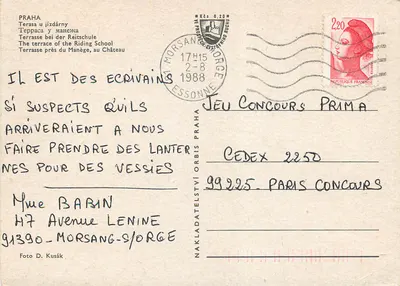 PRAHA
Terasa u jízdárny
Терраса у манежа
Terrasse bei der Reitschule
The terrace of the Riding School
Terrasse près du Manège, au Château
Kčs 0,20
MORSANG-S/ORGE
17H15
2-8
1988
ESSONNE
2,20
IL EST DES ECRIVAINS
SI SUSPECTS QU'ILS
ARRIVERAIENT A NOUS
FAIRE PRENDRE DES LANTER
NES POUR DES VESSIES
Mme BABIN
47 Avenue LENINE
91390-MORSANG-S/ORGE
Foto D. Kusák
NAKLADATELSTVÍ ORBIS PRAHA
JEU CONCOURS PRIMA
CEDEX 2250
99225-PARIS CONCOURS